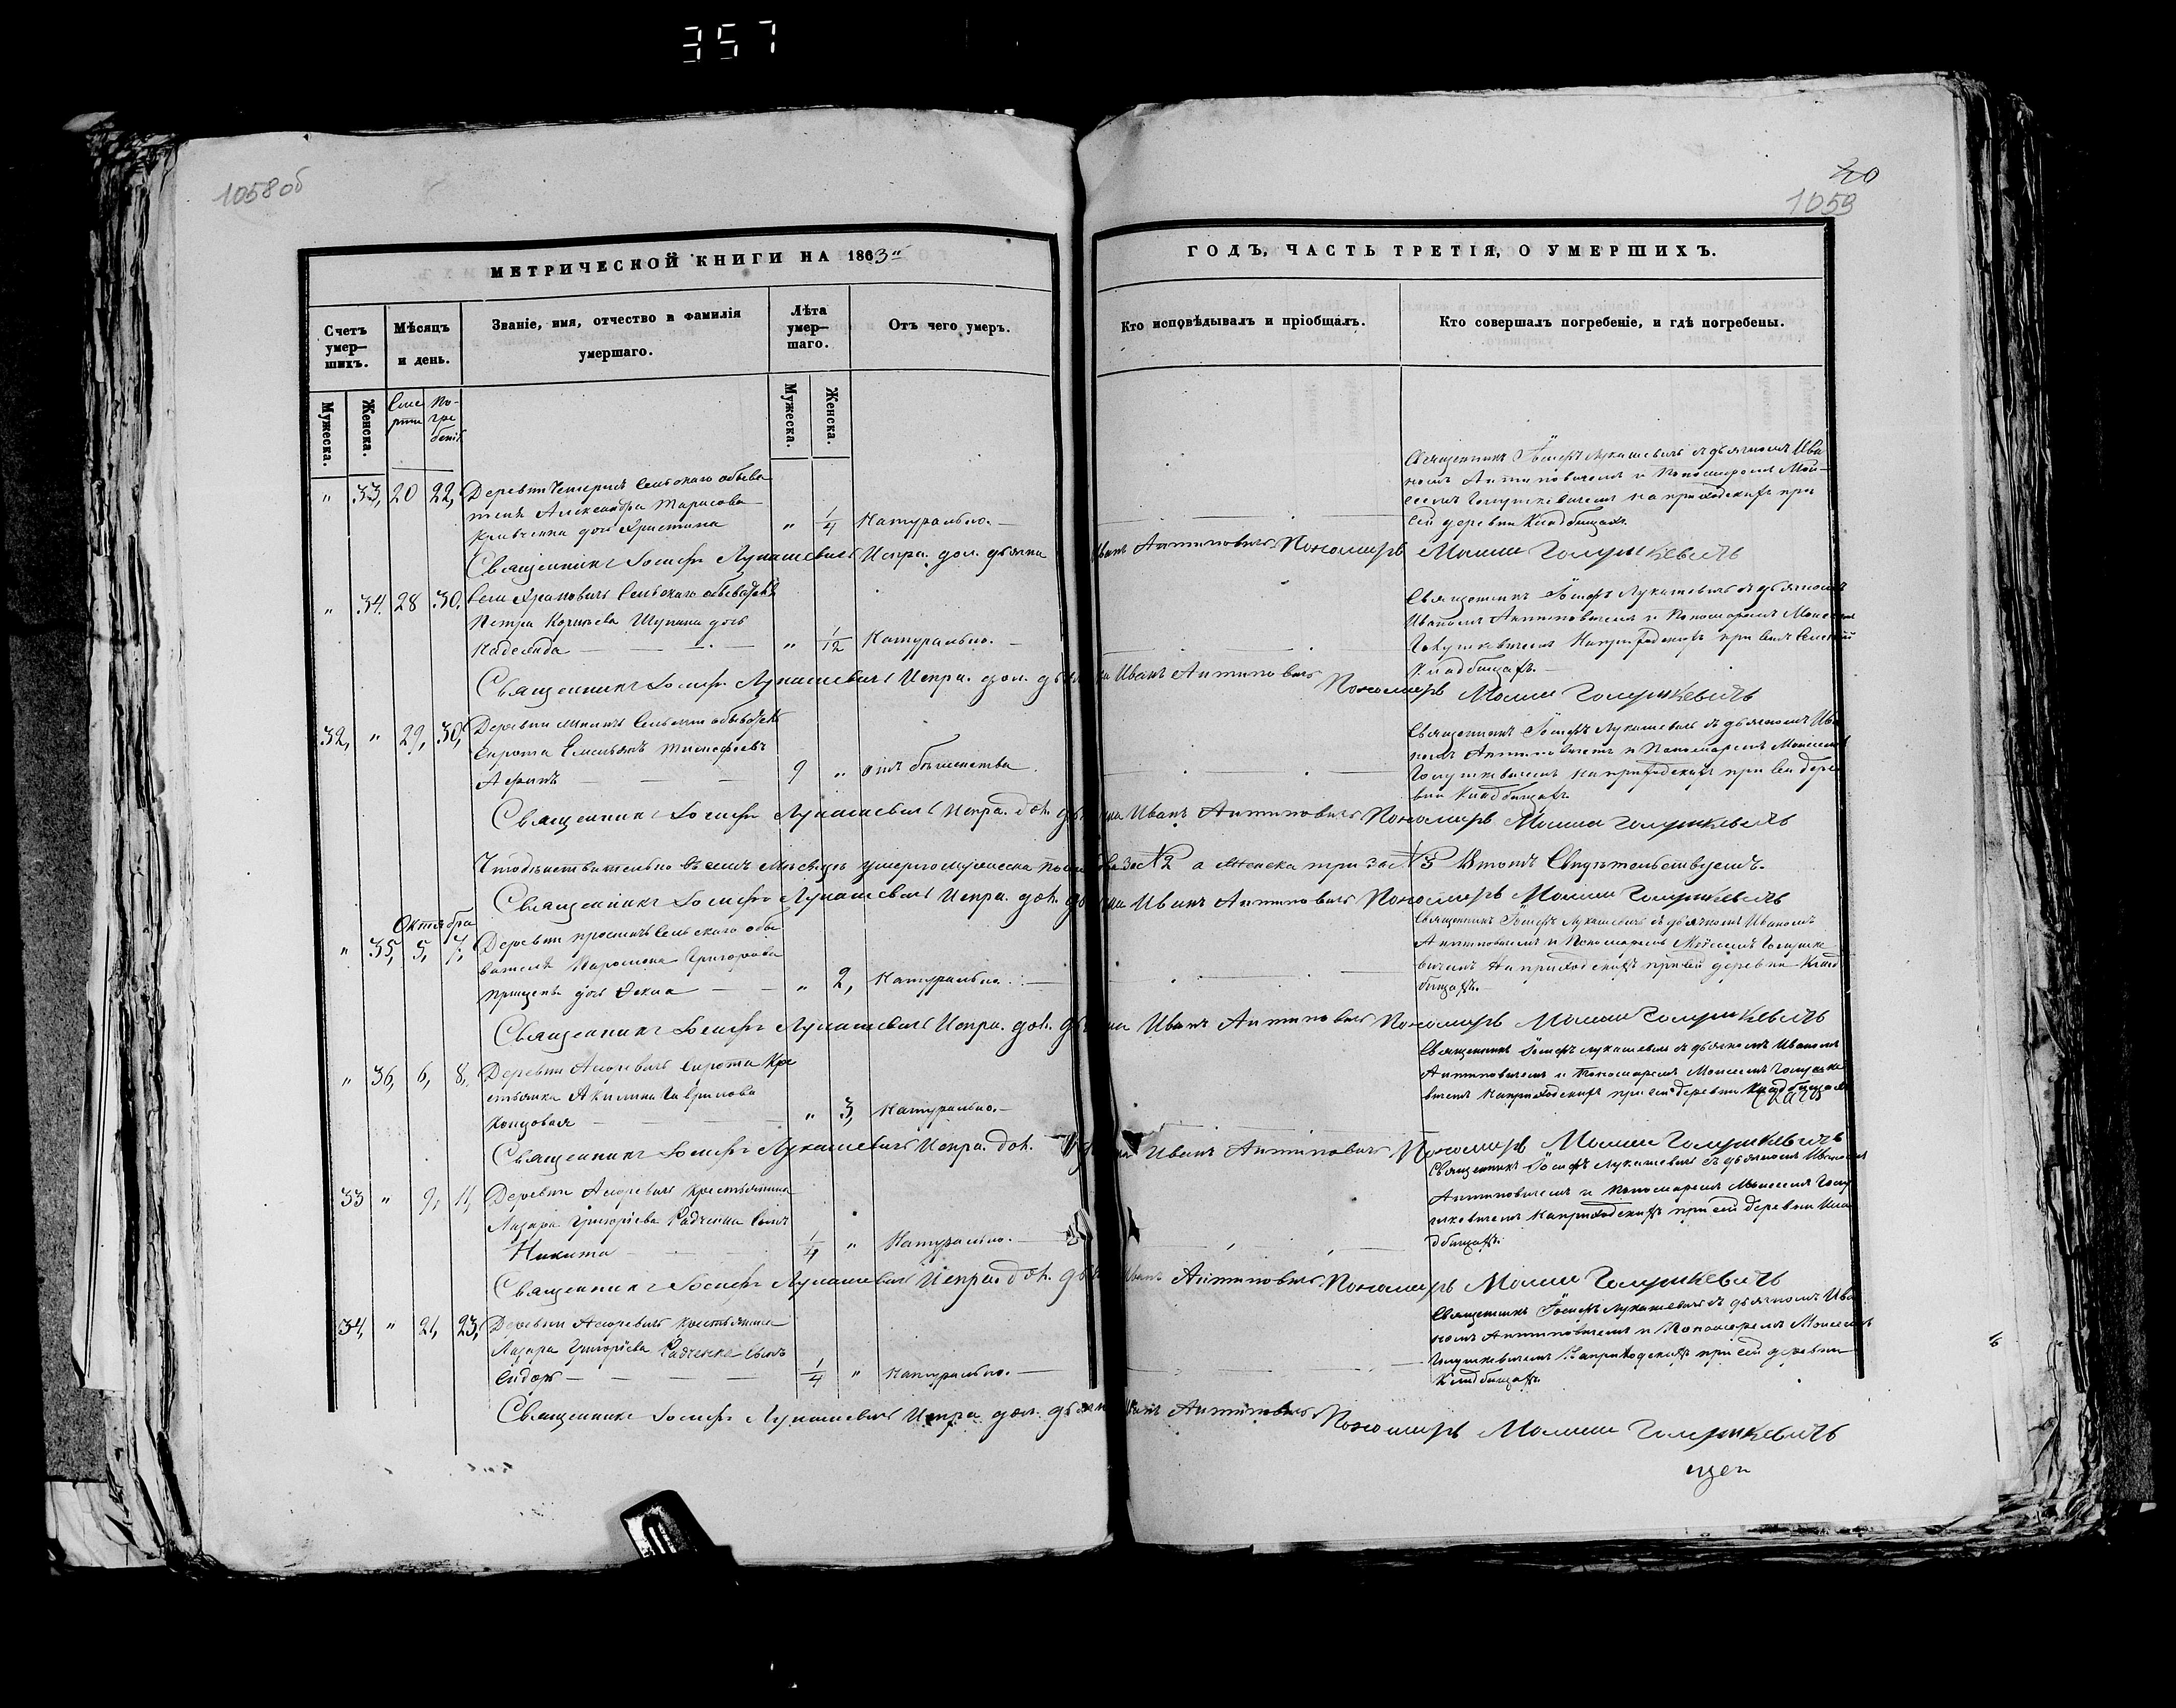 357
1058об
20
1059
МЕТРИЧЕСКОЙ КНИГИ НА 1863й
ГОДЪ, ЧАСТЬ ТРЕТІЯ, О УМЕРШИХЪ.
Счетъ умер—шихъ.
Мѣсяцъ и день.
Званіе, имя, отчество и фамилія умершаго.
Лѣта умер—шаго.
Отъ чего умеръ.
Кто исповѣдывалъ и пріобщалъ.
Кто совершалъ погребеніе, и гдѣ погребены.
Мужеска.
Женска.
Смерти
Погребенія
Мужеска.
Женска.
" 33, 20 22, Деревни Сельскаго обыва
теля Александра Тарасова
дочь Христина " 1/4 Натурально.—
Священникъ Іосифъ Лукашевичъ съ дьячкомъ Ива
номъ Антиповичемъ и Пономаремъ Мои—
сеемъ Голушкевичемъ на приходскихъ при
сей деревни Кладбищахъ.
Священникъ Іосифъ Лукашевичъ Испра. дол. дьячка Иванъ Антиповичъ Пономарь Моисей Голушкевичъ
" 34. 28 30. Села Храповичъ Сельскаго обывателя
Петра дочь
Надежда " 1/12 Натурально.—
Священникъ Іосифъ Лукашевичъ съ дьячкомъ
Иваномъ Антиповичемъ и Пономаремъ Моисеемъ
Голушкевичемъ На приходскихъ при семъ
Кладбищахъ.—
Священникъ Іосифъ Лукашевичъ Испра. дол. дьячка Иванъ Антиповичъ Пономарь Моисей Голушкевичъ
32, " 29, 30, Деревни
Сирота Емельянъ Тимофеевъ
9 " отъ бѣшенства
Священникъ Іосифъ Лукашевичъ съ дьячкомъ Ива
номъ Антиповичемъ и Пономаремъ Моисеемъ
Голушкевичемъ на приходскихъ при сей дере
вни Кладбищахъ.
Священникъ Іосифъ Лукашевичъ Испра. дол. дьячка Иванъ Антиповичъ Пономарь Моисей Голушкевичъ
Что дѣйствительно въ семъ мѣсяцѣ умерло мужеска пола два 2 а женска три 3 въ томъ Свидѣтельствуемъ.
Священникъ Іосифъ Лукашевичъ Испра. дол. дьячка Иванъ Антиповичъ Пономарь Моисей Голушкевичъ
Октября
" 35, 5, 7, Деревни Сельскаго обы
вателя Григорьева
дочь " 2, Натурально.—
Священникъ Іосифъ Лукашевичъ съ дьячкомъ Иваномъ
Антиповичемъ и Пономаремъ Моисеемъ Голушке
вичемъ На приходскихъ при сей деревни Клад
бищахъ.—
Священникъ Іосифъ Лукашевичъ Испра. дол. дьячка Иванъ Антиповичъ Пономарь Моисей Голушкевичъ
" 36, 6, 8, Деревни Сирота Кре
стьянка Акилина Гаврилова
" 3, Натурально.—
Священникъ Іосифъ Лукашевичъ съ дьячкомъ Иваномъ
Антиповичемъ и Пономаремъ Моисеемъ Голушке
вичемъ На приходскихъ при сей деревни Кладбищахъ
Священникъ Іосифъ Лукашевичъ Испра. дол. дьячка Иванъ Антиповичъ Пономарь Моисей Голушкевичъ
33 " 9, 11, Деревни Крестьянина
Лазаря Григорьева Радченки Сынъ
Никита 1/4 " Натурально.—
Священникъ Іосифъ Лукашевичъ съ дьячкомъ Иваномъ
Антиповичемъ и Пономаремъ Моисеемъ Голу
шкевичемъ На приходскихъ при сей деревни Кла
дбищахъ.
Священникъ Іосифъ Лукашевичъ Испра. дол. дьячка Иванъ Антиповичъ Пономарь Моисей Голушкевичъ
34, " 21, 23, Деревни Крестьянина
Лазаря Григорьева Радченки Сынъ
Сидоръ 1/4 " Натурально.—
Священникъ Іосифъ Лукашевичъ съ дьячкомъ Ива
номъ Антиповичемъ и Пономаремъ Моисеемъ
Голушкевичемъ На приходскихъ при сей деревни
Кладбищахъ.
Священникъ Іосифъ Лукашевичъ Испра. дол. дьячка Иванъ Антиповичъ Пономарь Моисей Голушкевичъ